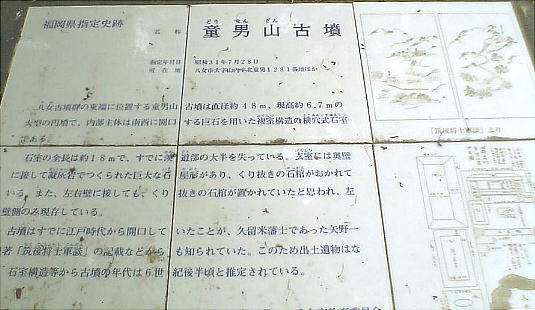 福岡県指定史跡
名称 童男山古墳
どう なん ざん こ ふん
指定年月日 昭和31年7月28日
所在地 八女市大字山内字北童男1281番地ほか
八女古墳群の東端に位置する童男山古墳は直径約48m、現高約6.7mの
大型の円墳で、内部主体は南西に開口する巨石を用いた複室構造の横穴式石室
である。
石室の全長は約18mで、すでに羨道部の大半を失っている。玄室には奥壁
に接して凝灰岩でつくられた巨大な石屋形があり、くり抜きの石棺がおかれて
いる。また、左右壁に接しても、くり抜きの石棺が置かれていたと思われ、左
壁側のみ現存している。
古墳はすでに江戸時代から開口していたことが、久留米藩士であった矢野一
著「筑後将士軍談」の記載などからも知られている。このため出土遺物はな
石室構造等から古墳の年代は6世紀後半頃と推定されている。
「筑後将士軍談」より